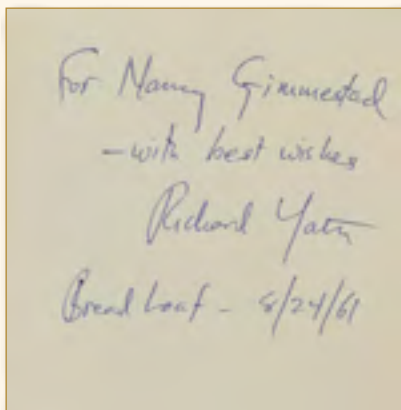 For Nancy Gimmestad
– with best wishes
Richard Yates
Bread Loaf – 8/24/61